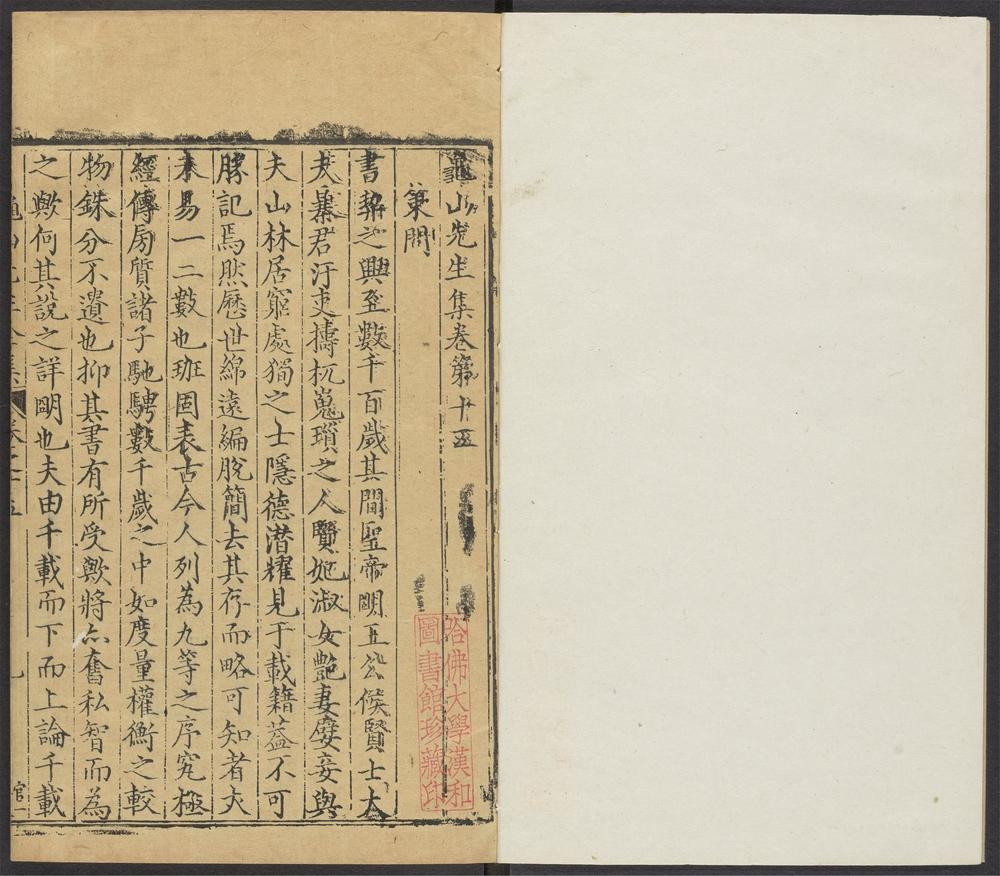 龜山先生集卷第十五
策問
書契之興至數千百歲其間聖帝明王公侯賢士大
夫暴君汙吏擣杌嵬瑣之人賢妃淑女艷妻嬖妾與
夫山林居窮處獨之士隱德潛耀見于載籍蓋不可
勝記焉然歷世綿遠編脫簡去其存而略可知者大
未易一二數也班固表古今人列為九等之序究極
經傳旁質諸子馳騁數千歲之中如度量權衡之較
物銖分不遺也抑其書有所受歟將亦奮私智而為
之歟何其說之詳明也夫由千載而下而上論千載
哈佛大學漢和
圖書館珍藏印